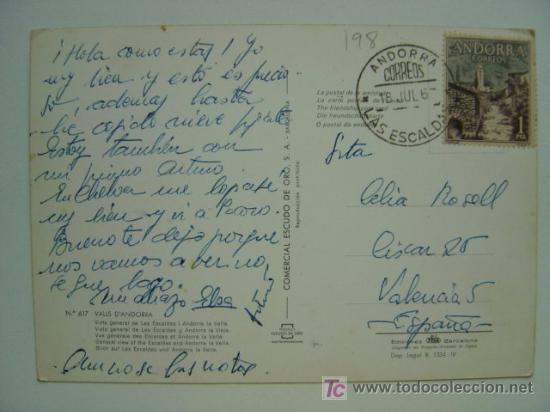 ¡Hola como estas! Yo
muy bien y esto es precio
so, ademas hasta
he cogido nieve
Estoy también con
mi primo Arturo.
En Chelva me lo pasé
muy bien y vi a
Bueno te dejo porque
nos vamos a ver no
se que lago.
Un abrazo Elsa
Arturo
198
ANDORRA
CORREOS
18 JUL 6
LAS ESCALDAS
ANDORRA
CORREOS
1
PTA
La postal de la amistad
La carte postale de
The friendship
Die freundschafts
O postal da
COMERCIAL ESCUDO DE ORO, S. A. - BARCELONA
Reproducción prohibida
Srta
Celia Rosell
Ciscar 25
Valencia 5
España
N.º 617 VALLS D'ANDORRA
Vista general de Les Escaldes i Andorra la Vella.
Vista general de Las Escaldas y Andorra la Vieja.
Vue générale des Escaldes et Andorre la Vieille.
General view of the Escaldes and Andorra la Vella.
Blick auf Les Escaldes und Andorra la Vella.
ESCUDO DE ORO
Ediciones Barcelona
Dep. Legal B. 1334 - IV
todocoleccion
www.todocoleccion.net